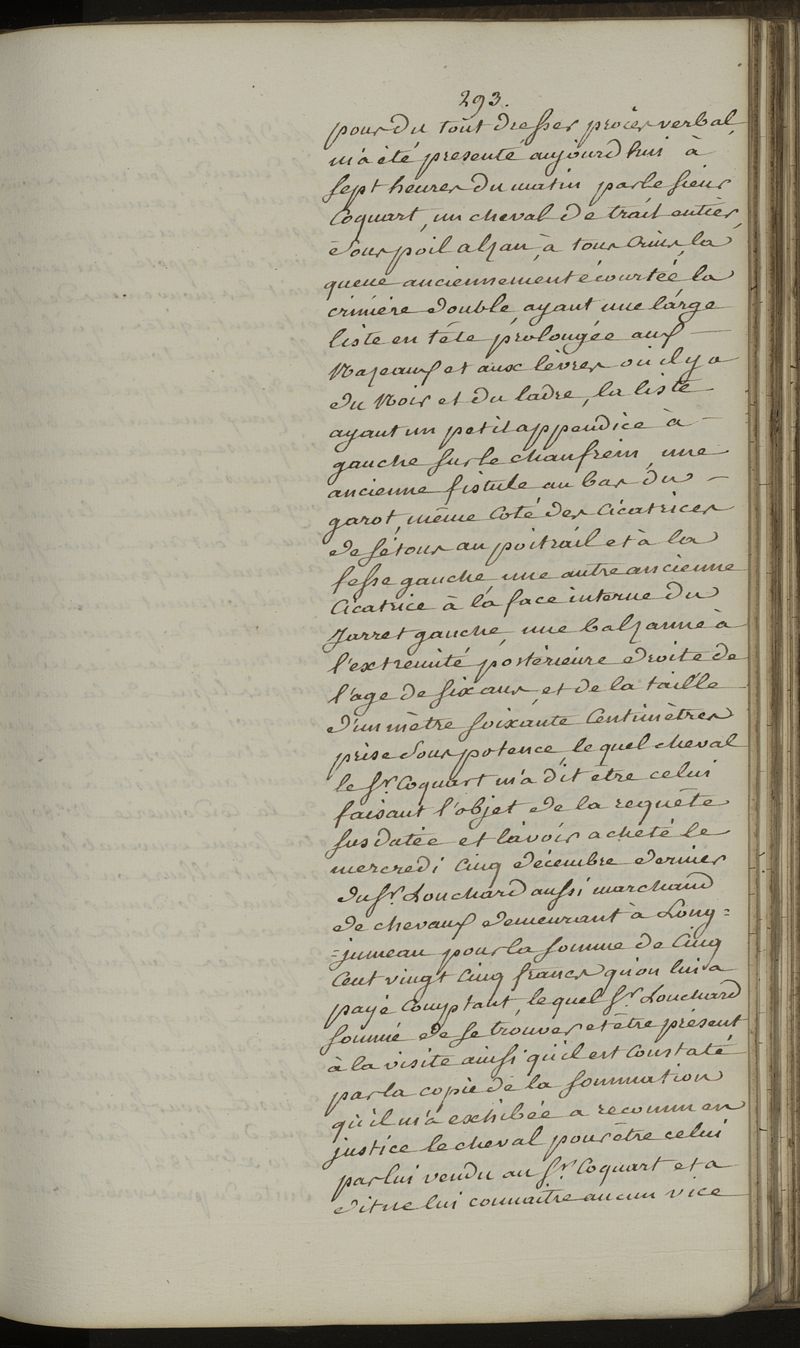 293.
pour du tout dresser procès verbal,
m'a été presenté aujourd'hui à
sept heures du matin par le sieur
Coquart, un cheval de trait entier,
sous poil alzan, à tous crins, la
queue anciennement écourtée la
crinière double, ayant une large
liste en tête prolongée aux —
Nazeaux et aux lèvres où il y a
du Noir et du ladre, la liste
ayant un petit appendice à —
gauche sur le chanfrein, une
ancienne fistule au bas du —
garot, même coté des Cicatrices
de sétons au poitrail et à la
fesse gauche, une autre ancienne
Cicatrice à la face interne du
Jarret gauche, une balzanne à
l'extremité postérieure droite de
l'age de six ans, et de la taille
d'un mètre soixante Centimètres
prise sous potence, le quel cheval
le Sr. Coquart m'a dit être celui
faisant l'objet de la requête
sus datée et l'avoir acheté le
mercredi Cinq décembre dernier
du Sr. Louchard aussi marchand
de chevaux demeurant à Long=
=jumeau pour la somme de Cinq
Cent vingt Cinq francs qu'on lui a
payé Comptant, le quel Sr. Louchard
sommé de se trouver et être présent
à la visite ainsi qu'il est Constaté
par la copie de la sommation
qu'il m'a exhibée a reconnu en
justice le cheval pour être celui
par lui vendu au Sr. Coquart et a
dit ne lui connaître aucun vice